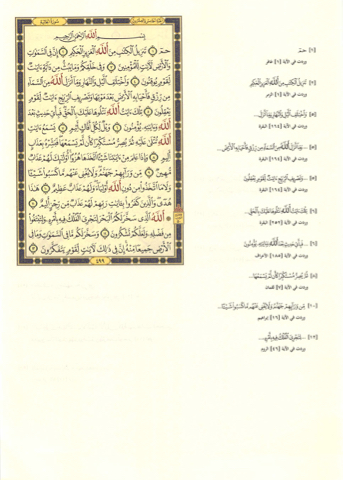 سورة الجاثية
بِسْمِ اللَّهِ الرَّحْمَٰنِ الرَّحِيمِ
حمٓ ۝١ تَنزِيلُ الْكِتَٰبِ مِنَ اللَّهِ الْعَزِيزِ الْحَكِيمِ ۝٢ إِنَّ فِي السَّمَٰوَٰتِ
وَالْأَرْضِ لَءَايَٰتٍ لِّلْمُؤْمِنِينَ ۝٣ وَفِي خَلْقِكُمْ وَمَا يَبُثُّ مِن دَآبَّةٍ ءَايَٰتٌ
لِّقَوْمٍ يُوقِنُونَ ۝٤ وَاخْتِلَٰفِ الَّيْلِ وَالنَّهَارِ وَمَآ أَنزَلَ اللَّهُ مِنَ السَّمَآءِ
مِن رِّزْقٍ فَأَحْيَا بِهِ الْأَرْضَ بَعْدَ مَوْتِهَا وَتَصْرِيفِ الرِّيَٰحِ ءَايَٰتٌ لِّقَوْمٍ
يَعْقِلُونَ ۝٥ تِلْكَ ءَايَٰتُ اللَّهِ نَتْلُوهَا عَلَيْكَ بِالْحَقِّ فَبِأَيِّ حَدِيثٍ بَعْدَ
اللَّهِ وَءَايَٰتِهِ يُؤْمِنُونَ ۝٦ وَيْلٌ لِّكُلِّ أَفَّاكٍ أَثِيمٍ ۝٧ يَسْمَعُ ءَايَٰتِ
اللَّهِ تُتْلَىٰ عَلَيْهِ ثُمَّ يُصِرُّ مُسْتَكْبِرًا كَأَن لَّمْ يَسْمَعْهَا فَبَشِّرْهُ بِعَذَابٍ
أَلِيمٍ ۝٨ وَإِذَا عَلِمَ مِنْ ءَايَٰتِنَا شَيْـًٔا اتَّخَذَهَا هُزُوًا أُولَٰٓئِكَ لَهُمْ عَذَابٌ
مُّهِينٌ ۝٩ مِّن وَرَآئِهِمْ جَهَنَّمُ وَلَا يُغْنِي عَنْهُم مَّا كَسَبُوا شَيْـًٔا
وَلَا مَا اتَّخَذُوا مِن دُونِ اللَّهِ أَوْلِيَآءَ وَلَهُمْ عَذَابٌ عَظِيمٌ ۝١٠ هَٰذَا
هُدًى وَالَّذِينَ كَفَرُوا بِـَٔايَٰتِ رَبِّهِمْ لَهُمْ عَذَابٌ مِّن رِّجْزٍ أَلِيمٌ ۝١١
اللَّهُ الَّذِي سَخَّرَ لَكُمُ الْبَحْرَ لِتَجْرِيَ الْفُلْكُ فِيهِ بِأَمْرِهِ وَلِتَبْتَغُوا
مِن فَضْلِهِ وَلَعَلَّكُمْ تَشْكُرُونَ ۝١٢ وَسَخَّرَ لَكُم مَّا فِي السَّمَٰوَٰتِ وَمَا فِي
الْأَرْضِ جَمِيعًا مِّنْهُ إِنَّ فِي ذَٰلِكَ لَءَايَٰتٍ لِّقَوْمٍ يَتَفَكَّرُونَ ۝١٣
٤٩٩
[١] حمٓ
وردت في الآية [١] غافر
[٢] تَنزِيلُ الْكِتَٰبِ مِنَ اللَّهِ الْعَزِيزِ الْحَكِيمِ
وردت في الآية [١] الزمر
[٥] وَاخْتِلَٰفِ الَّيْلِ وَالنَّهَارِ وَمَآ أَنزَلَ...
وردت في الآية [١٦٤] البقرة
[٥] ...وَمَآ أَنزَلَ اللَّهُ مِنَ السَّمَآءِ مِن رِّزْقٍ فَأَحْيَا بِهِ الْأَرْضَ...
وردت في الآية [١٦٤] البقرة
[٥] ...وَتَصْرِيفِ الرِّيَٰحِ ءَايَٰتٌ لِّقَوْمٍ يَعْقِلُونَ
وردت في الآية [١٦٤] البقرة
[٦] تِلْكَ ءَايَٰتُ اللَّهِ نَتْلُوهَا عَلَيْكَ بِالْحَقِّ...
وردت في الآية [٢٥٢] البقرة
[٦] ...فَبِأَيِّ حَدِيثٍ بَعْدَ اللَّهِ وَءَايَٰتِهِ يُؤْمِنُونَ
وردت في الآية [١٨٥] الأعراف
[٨] ...ثُمَّ يُصِرُّ مُسْتَكْبِرًا كَأَن لَّمْ يَسْمَعْهَا...
وردت في الآية [٧] لقمان
[١٠] مِّن وَرَآئِهِمْ جَهَنَّمُ وَلَا يُغْنِي عَنْهُم مَّا كَسَبُوا شَيْـًٔا...
وردت في الآية [١٦] إبراهيم
[١٢] ...لِتَجْرِيَ الْفُلْكُ فِيهِ بِأَمْرِهِ...
وردت في الآية [٤٦] الروم